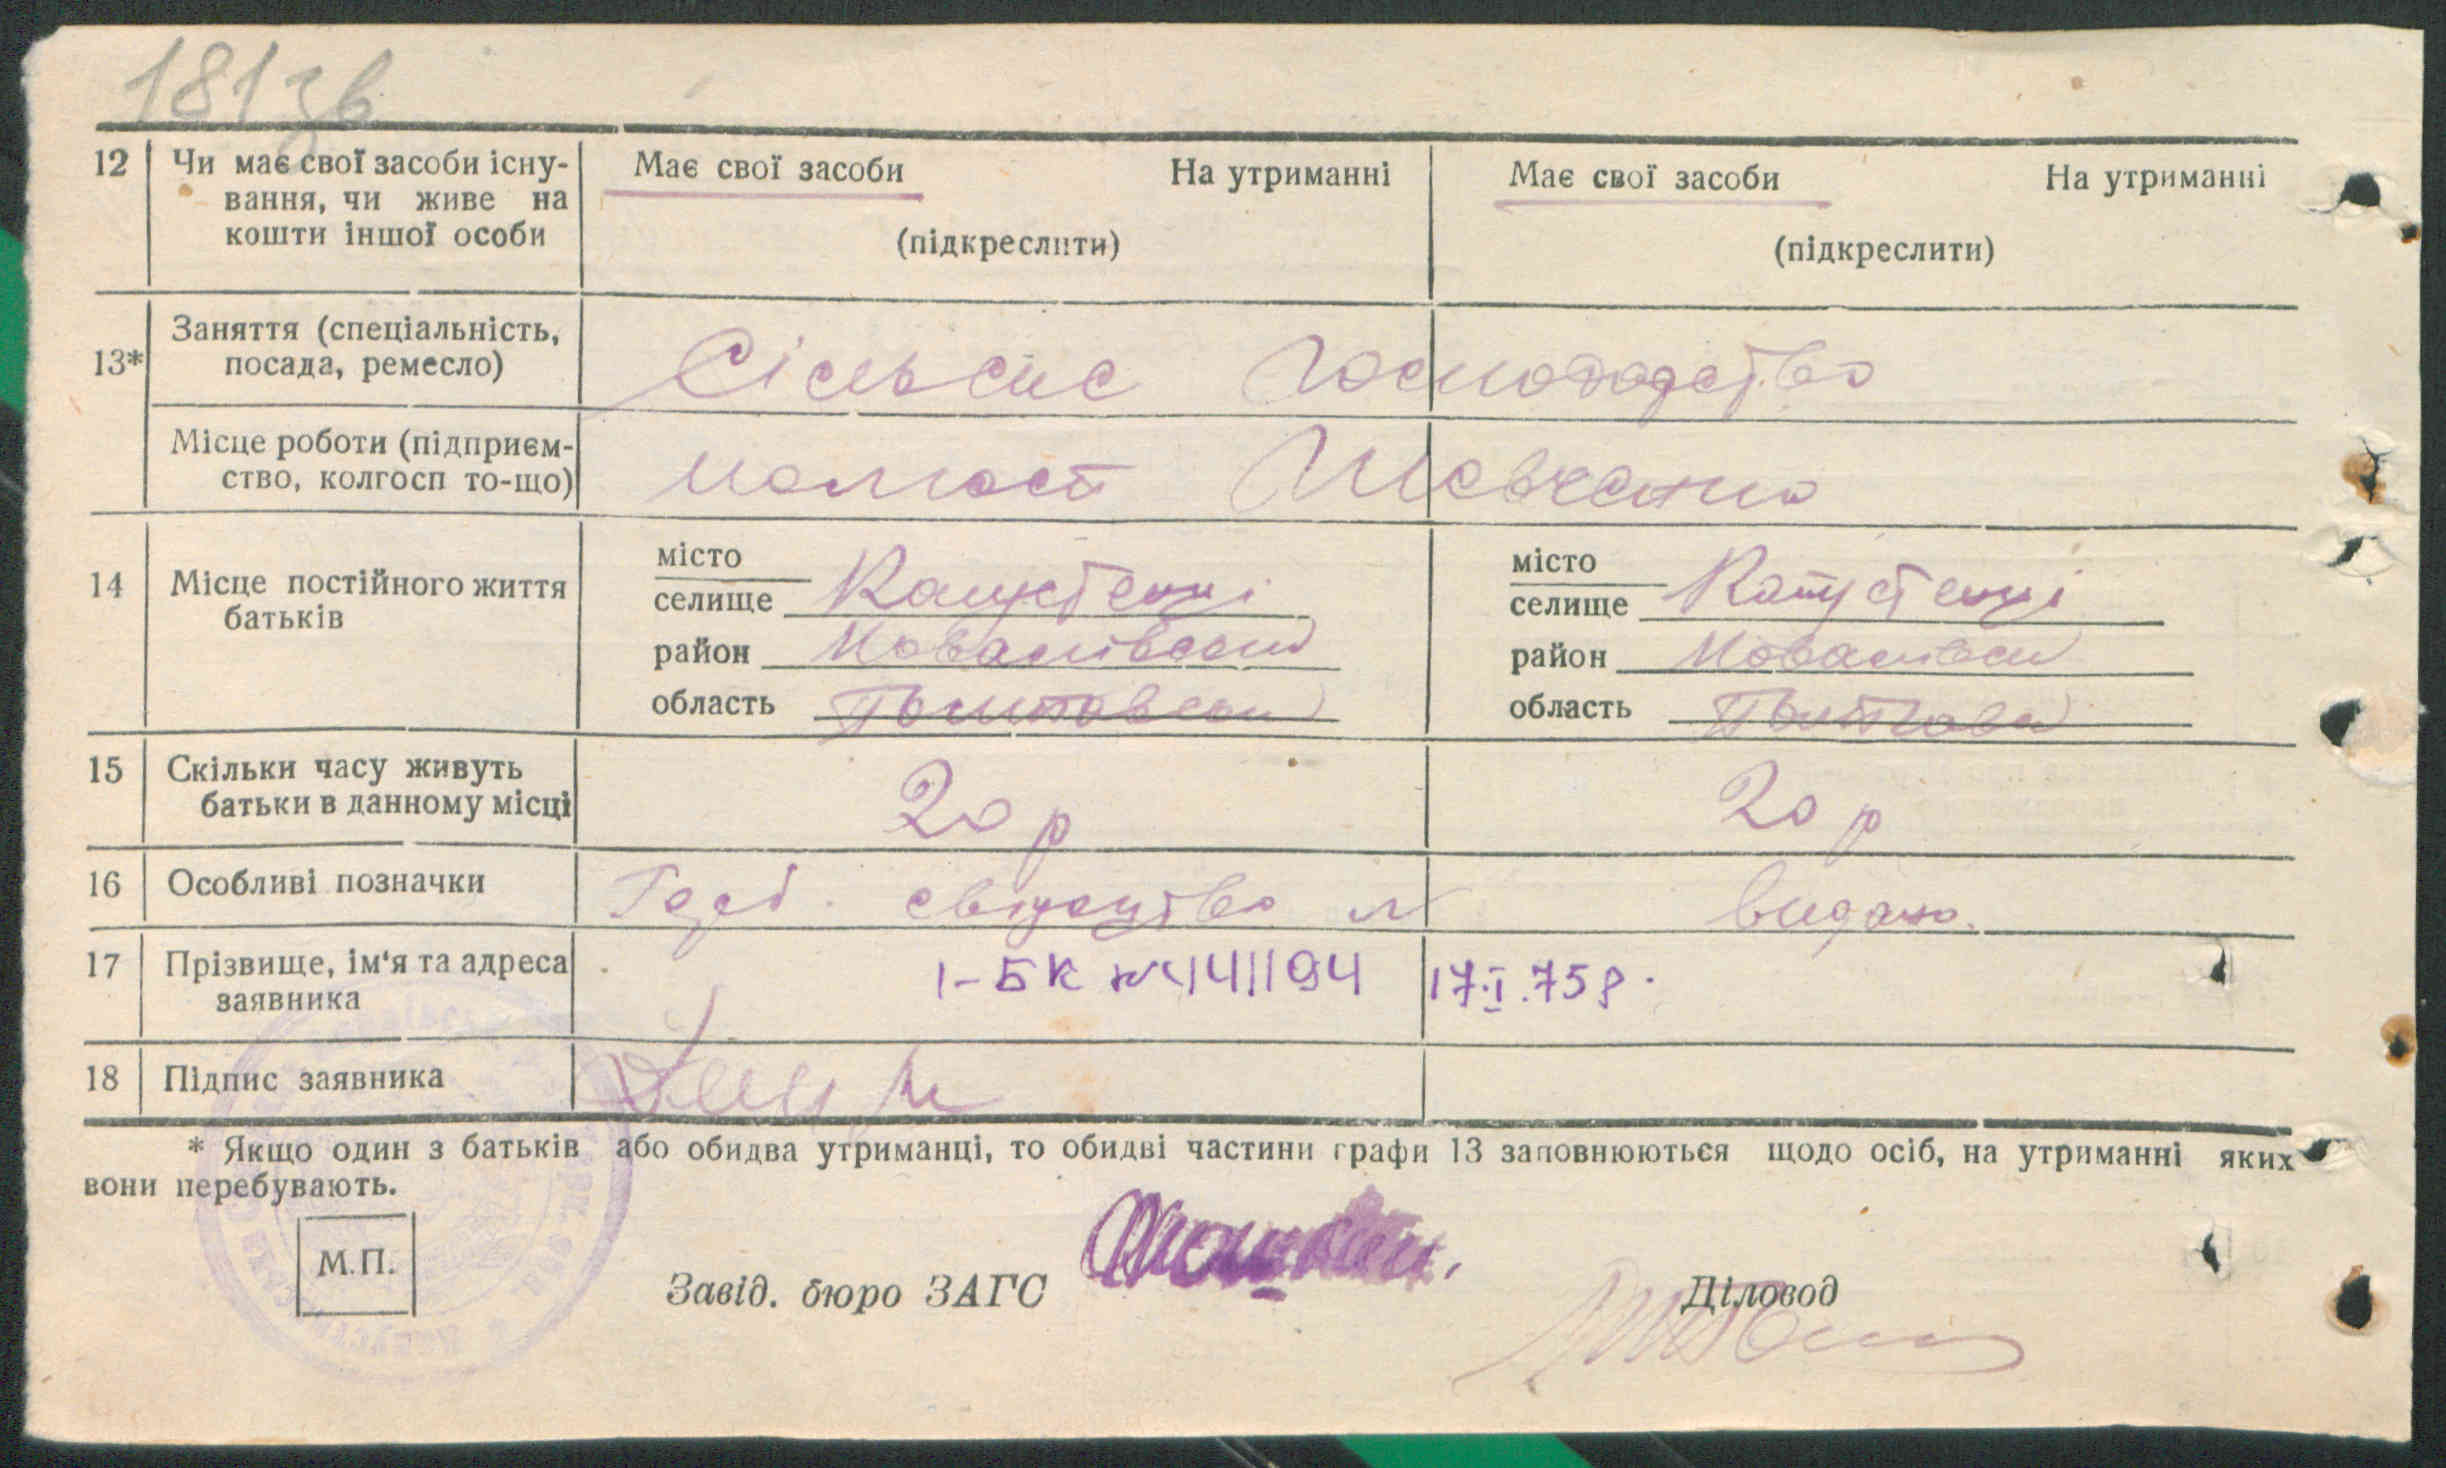 181 зв
12 Чи має свої засоби існу- Має свої засоби На утриманні Має свої засоби На утриманні
вання, чи живе на
кошти іншої особи (підкреслити) (підкреслити)
13* Заняття (спеціальність,
посада, ремесло) Сільське Господарство
Місце роботи (підприєм-
ство, колгосп то-що) Колгосп Шевченко
14 Місце постійного життя
батьків
місто
селище Капустенці
район
область Полтавська
місто
селище Капустенці
район
область Полтавська
15 Скільки часу живуть
батьки в данному місці 20 р 20 р
16 Особливі позначки свідоцтво видано.
17 Прізвище, ім'я та адреса
заявника
I-БК № 141194 17.I.75р.
18 Підпис заявника
* Якщо один з батьків або обидва утриманці, то обидві частини графи 13 заповнюються щодо осіб, на утриманні яких
вони перебувають.
М.П.
Завід. бюро ЗАГС Діловод